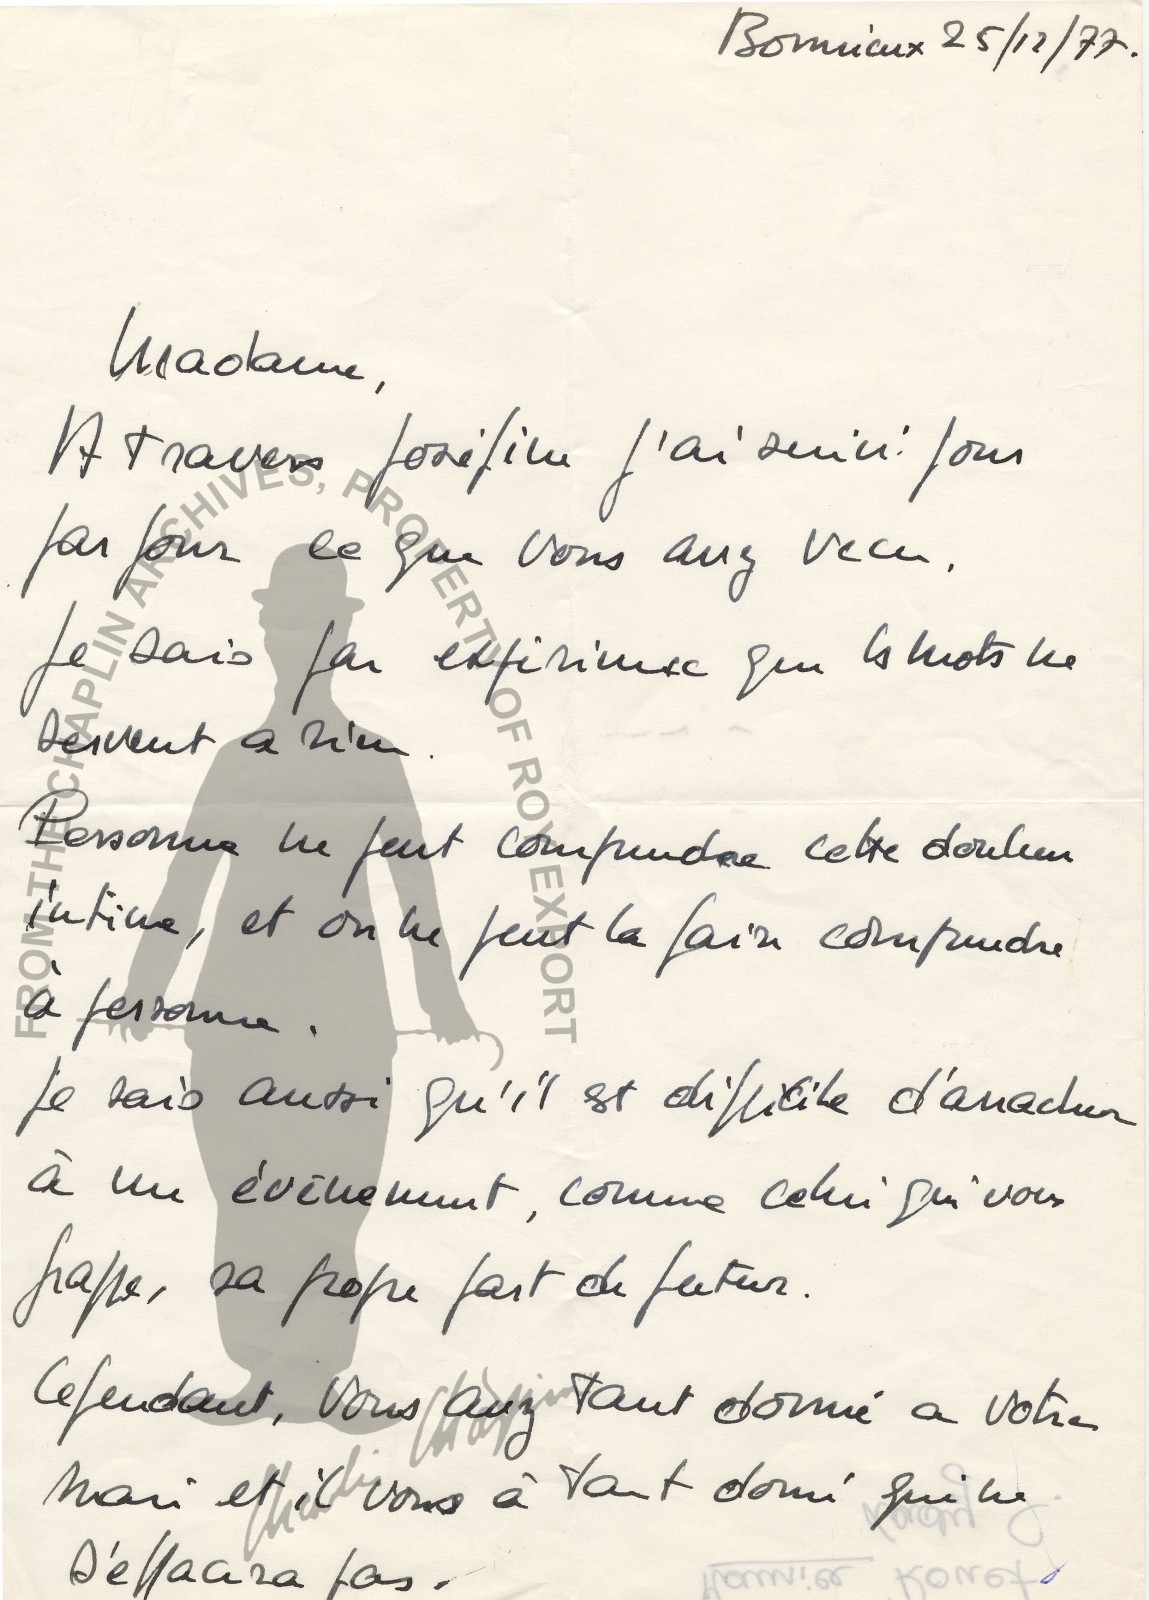 Bonnieux 25/12/77.
Madame,
A travers Joséfine j'ai suivi jour
par jour ce que vous avez vecu.
Je sais par expérience que les mots ne
servent a rien.
Personne ne peut comprendre cette douleur
intime, et on ne peut la faire comprendre
à personne.
Je sais aussi qu'il est difficile d'arracher
à un événement, comme celui qui vous
frappe, sa propre part de futur.
Cependant, vous avez tant donné a votre
mari et il vous à tant donné qui ne
s'effacera pas.
FROM THE CHAPLIN ARCHIVES, PROPERTY OF ROY EXPORT
Charlie Chaplin